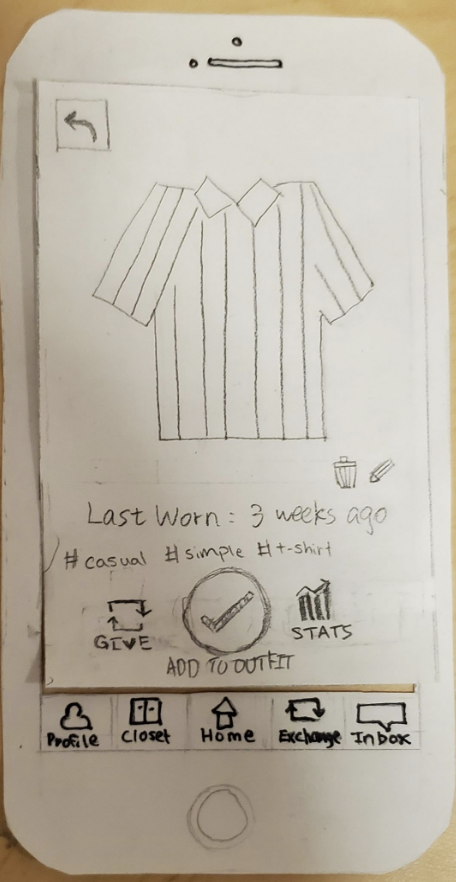 Last Worn: 3 weeks ago
#casual #simple #t-shirt
GIVE
STATS
ADD TO OUTFIT
Profile Closet Home Exchange Inbox